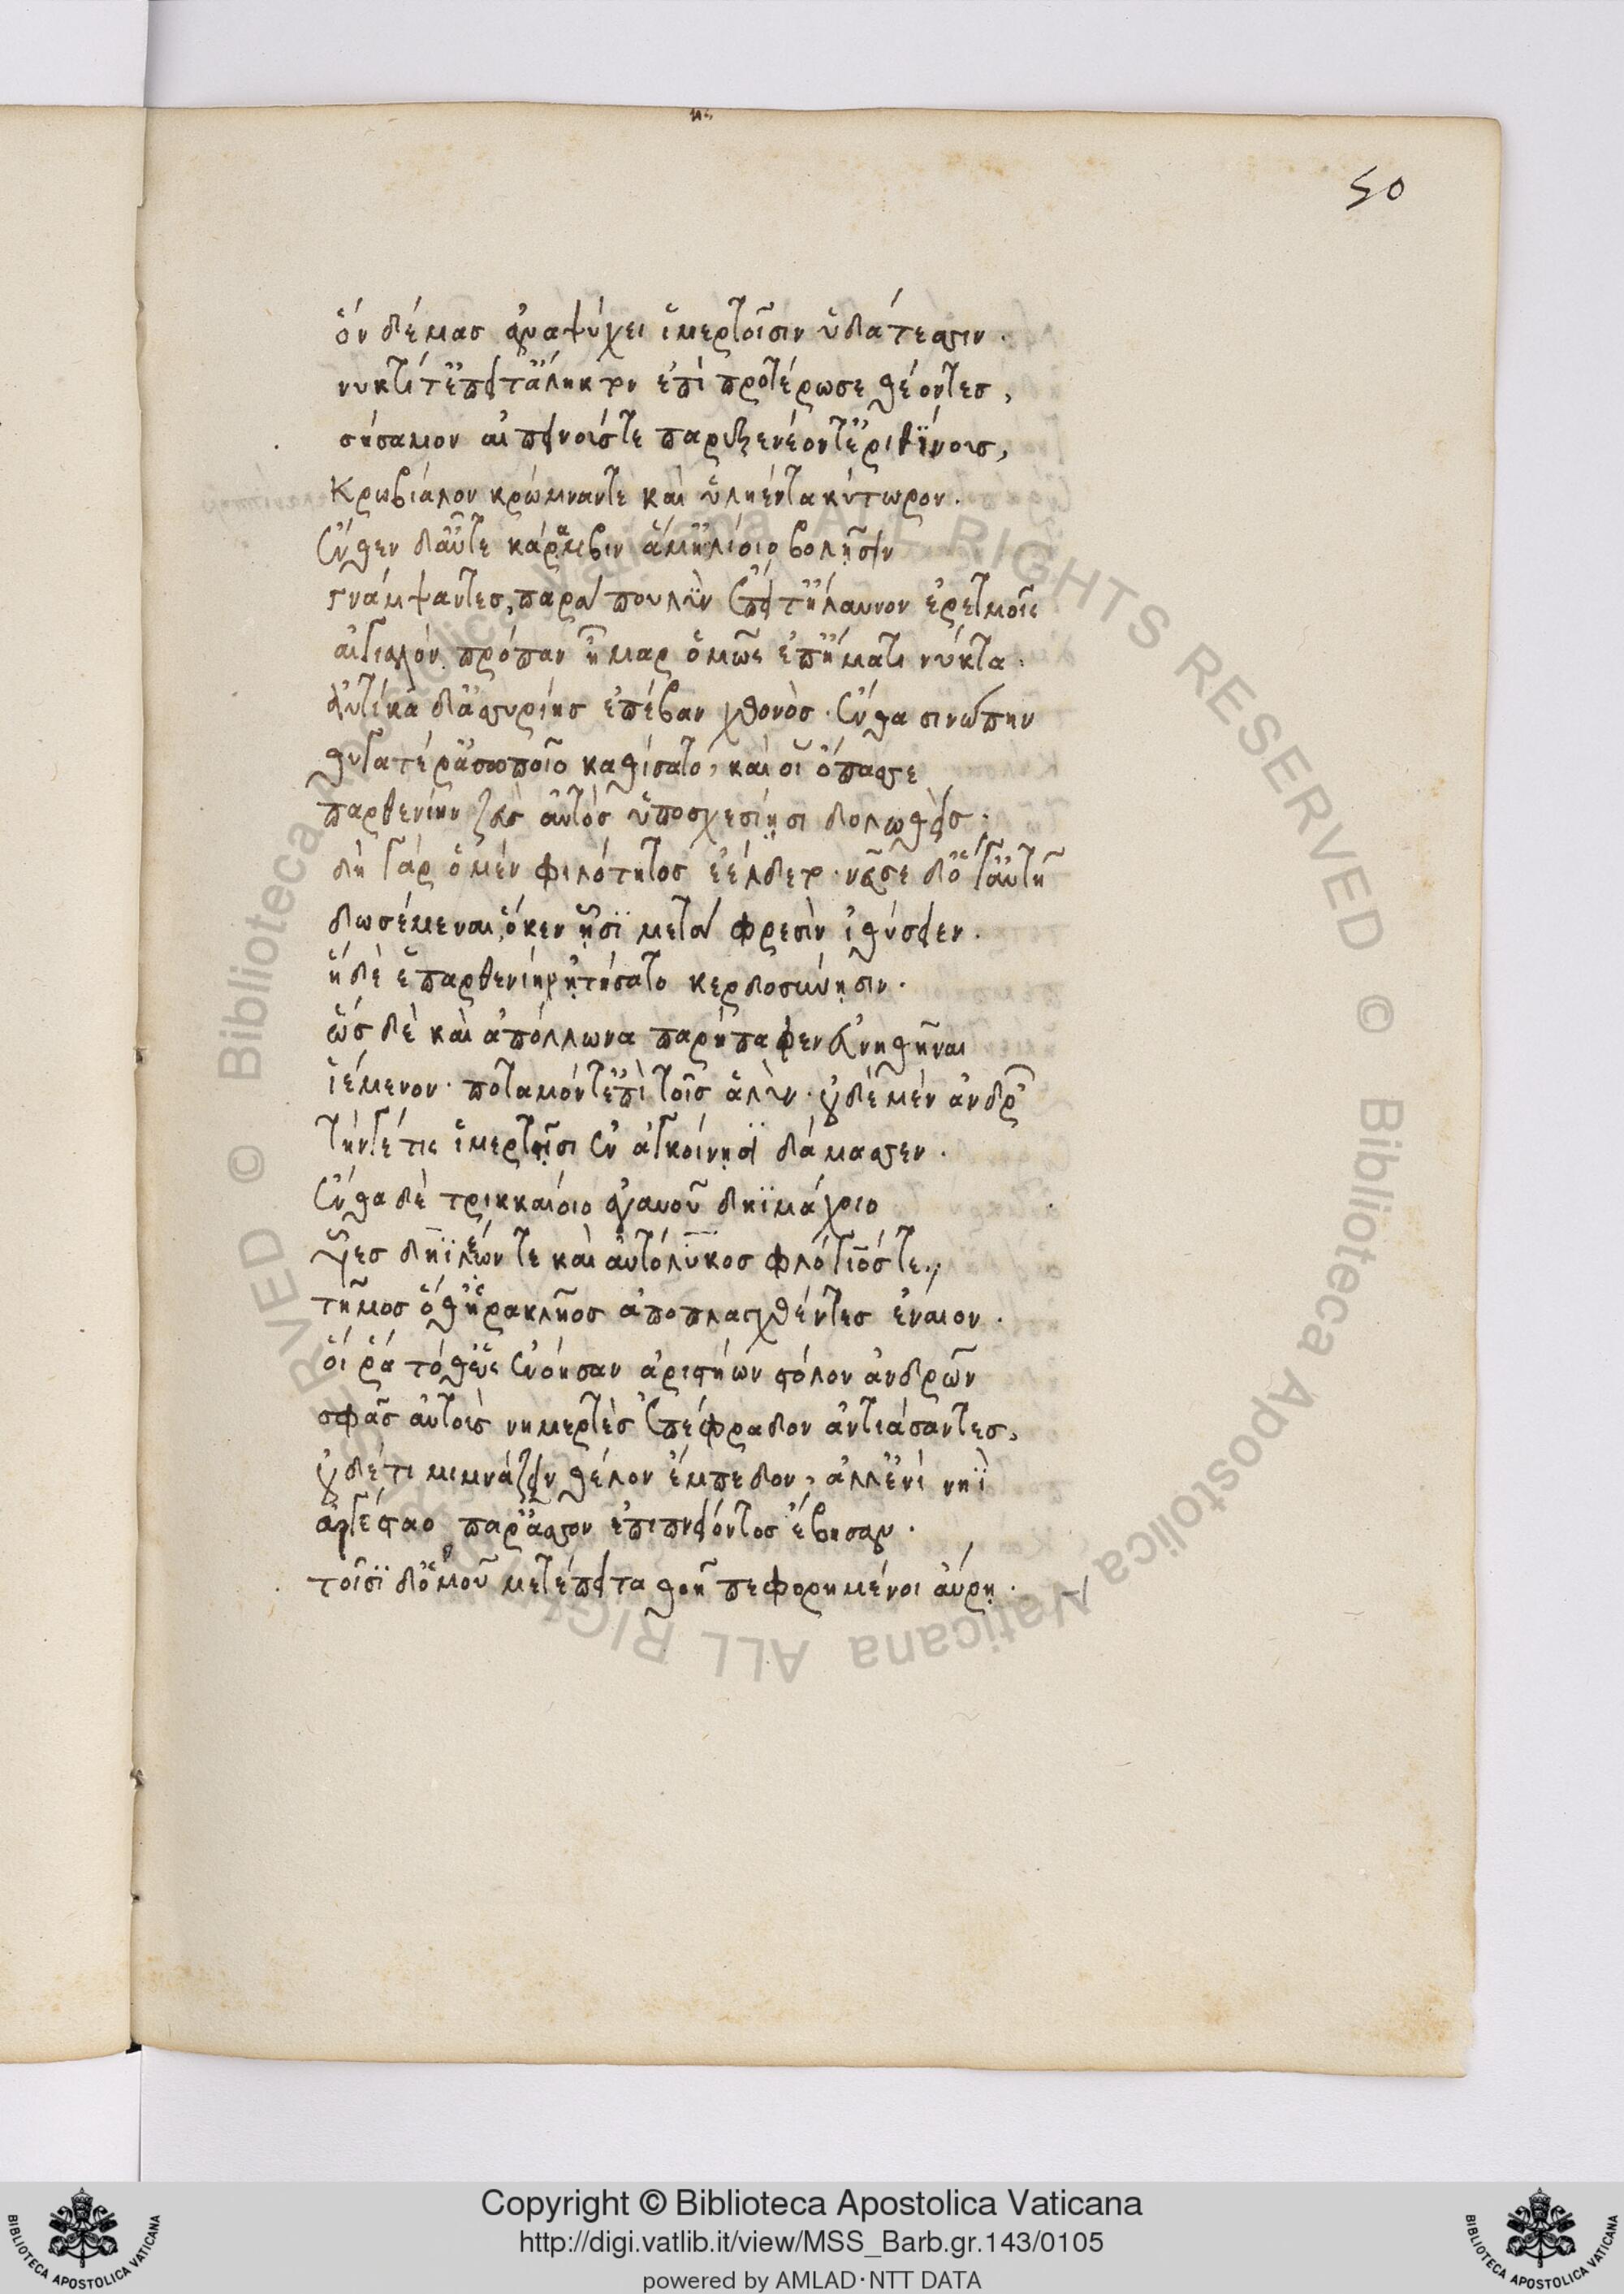 50
ὃν δέμας ἀναψύχει ἱμερτοῖσιν ὑδάτεσσιν.
νυκτί τ' ἔπειτ' ἄληκτον ἐπὶ προτέρωσε θέοντες,
σήσαμον αἰπεινούς τε παρεξενέοντ' ἐριθίνους,
Κρωβίαλον κρώμναν τε καὶ ὑλήεντα κύτωρον.
ἔνθεν δ' αὖτε κάραμβιν ἅμ' ἠελίοιο βολῇσιν
γνάμψαντες, παρὰ πουλὺν ἔπειτ' ἤλαυνον ἐρετμοῖς
αἰγιαλόν πρόπαν ἦμαρ ὁμῶς ἐπ' ἤματι νύκτα.
αὐτίκα δ' ἀσσυρίης ἐπέβαν χθονὸς. ἔνθα σινώπην
θυγατέρ' ἀσωποῖο καθίσατο, καὶ οἱ ὄπασσε
παρθενίην ζεὺς αὐτός ὑποσχεσίῃσι δολωθεὶς.
δὴ γὰρ ὁ μὲν φιλότητος ἐέλδετο. νεῦσε δ' ὅ γ' αὐτῆ
δωσέμεναι, ὅ κεν ᾗσι μετὰ φρεσὶν ἰθύσειεν.
ἡ δὲ ἑ παρθενίην ᾐτήσατο κερδοσύνῃσιν.
ὣς δὲ καὶ ἀπόλλωνα παρήπαφεν εὐνηθῆναι
ἱέμενον. ποταμόν τ' ἐπὶ τοῖς ἅλυν. οὐδὲ μὲν ἀνδρῶν
τήν γέ τις ἱμερτῇσι ἐν ἀγκοίνῃσι δάμασσεν.
ἔνθα δὲ τρικκαίοιο ἀγανοῦ δηϊμάχοιο
υἷες δηϊλέων τε καὶ αὐτόλυκος φλόγιός τε.,
τῆμος ὅθ' ἡρακλῆος ἀποπλαγχθέντες ἔναιον.
οἵ ῥα τόθ' ὡς ἐνόησαν ἀριστήων στόλον ἀνδρῶν
σφᾶς αὐτοὺς νημερτὲς ἐπέφραδον ἀντιάσαντες,
οὐδ' ἔτι μιμνάζειν θέλον ἔμπεδον, ἀλλ' ἐνὶ νηῒ
ἀργέσταο παρ' ἆσσον ἐπιπνείοντος ἔβησαν.
τοῖσι δ' ὁμοῦ μετέπειτα θοῇ πεφορημένοι αὔρῃ.
Copyright © Biblioteca Apostolica Vaticana
http://digi.vatlib.it/view/MSS_Barb.gr.143/0105
powered by AMLAD·NTT DATA